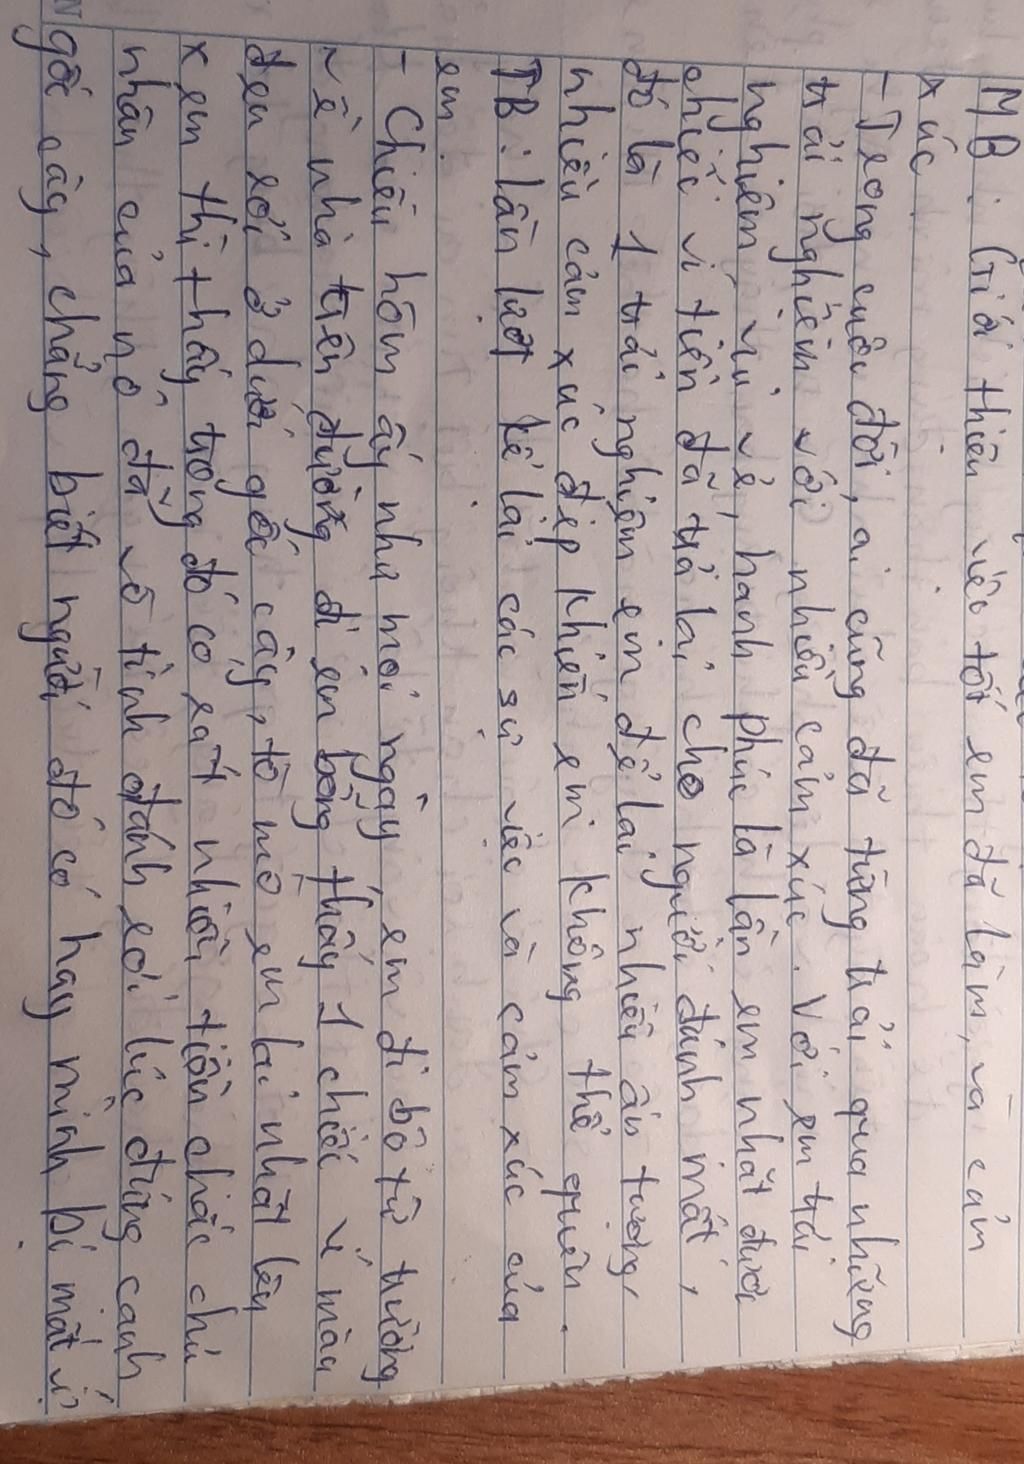 MB: Giới thiệu việc tốt em đã làm, và cảm
xúc
- Trong cuộc đời, ai cũng đã từng trải qua những
trải nghiệm với nhiều cảm xúc. Với em trải
nghiệm vui vẻ, hạnh phúc là lần em nhặt được
chiếc ví tiền đã trả lại cho người đánh mất,
đó là 1 trải nghiệm em để lại nhiều ấn tượng,
nhiều cảm xúc đẹp khiến em không thể quên.
TB: lần lượt kể lại các sự việc và cảm xúc của
em.
- Chiều hôm ấy như mọi ngày, em đi bộ từ trường
về nhà trên đường đi em bỗng thấy 1 chiếc ví màu
đen rơi ở dưới gốc cây, tò mò em lại nhặt lên
xem thì thấy trong đó có rất nhiều tiền chắc chủ
nhân của nó đã vô tình đánh rơi lúc đứng cạnh
gốc cây, chẳng biết người đó có hay mình bị mất ví